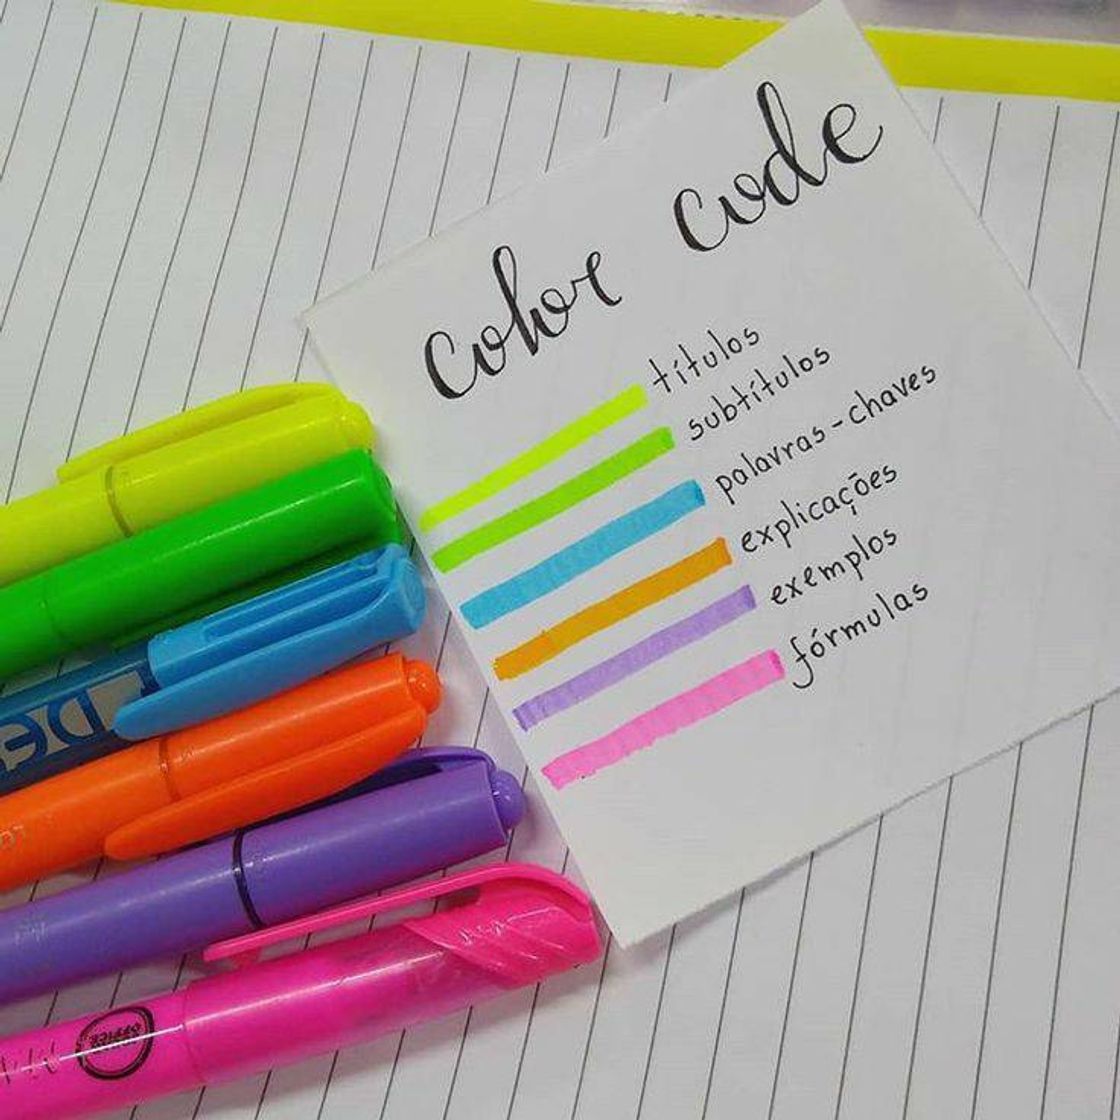 color code
títulos
subtítulos
palavras-chaves
explicações
exemplos
fórmulas
De
OFFICE